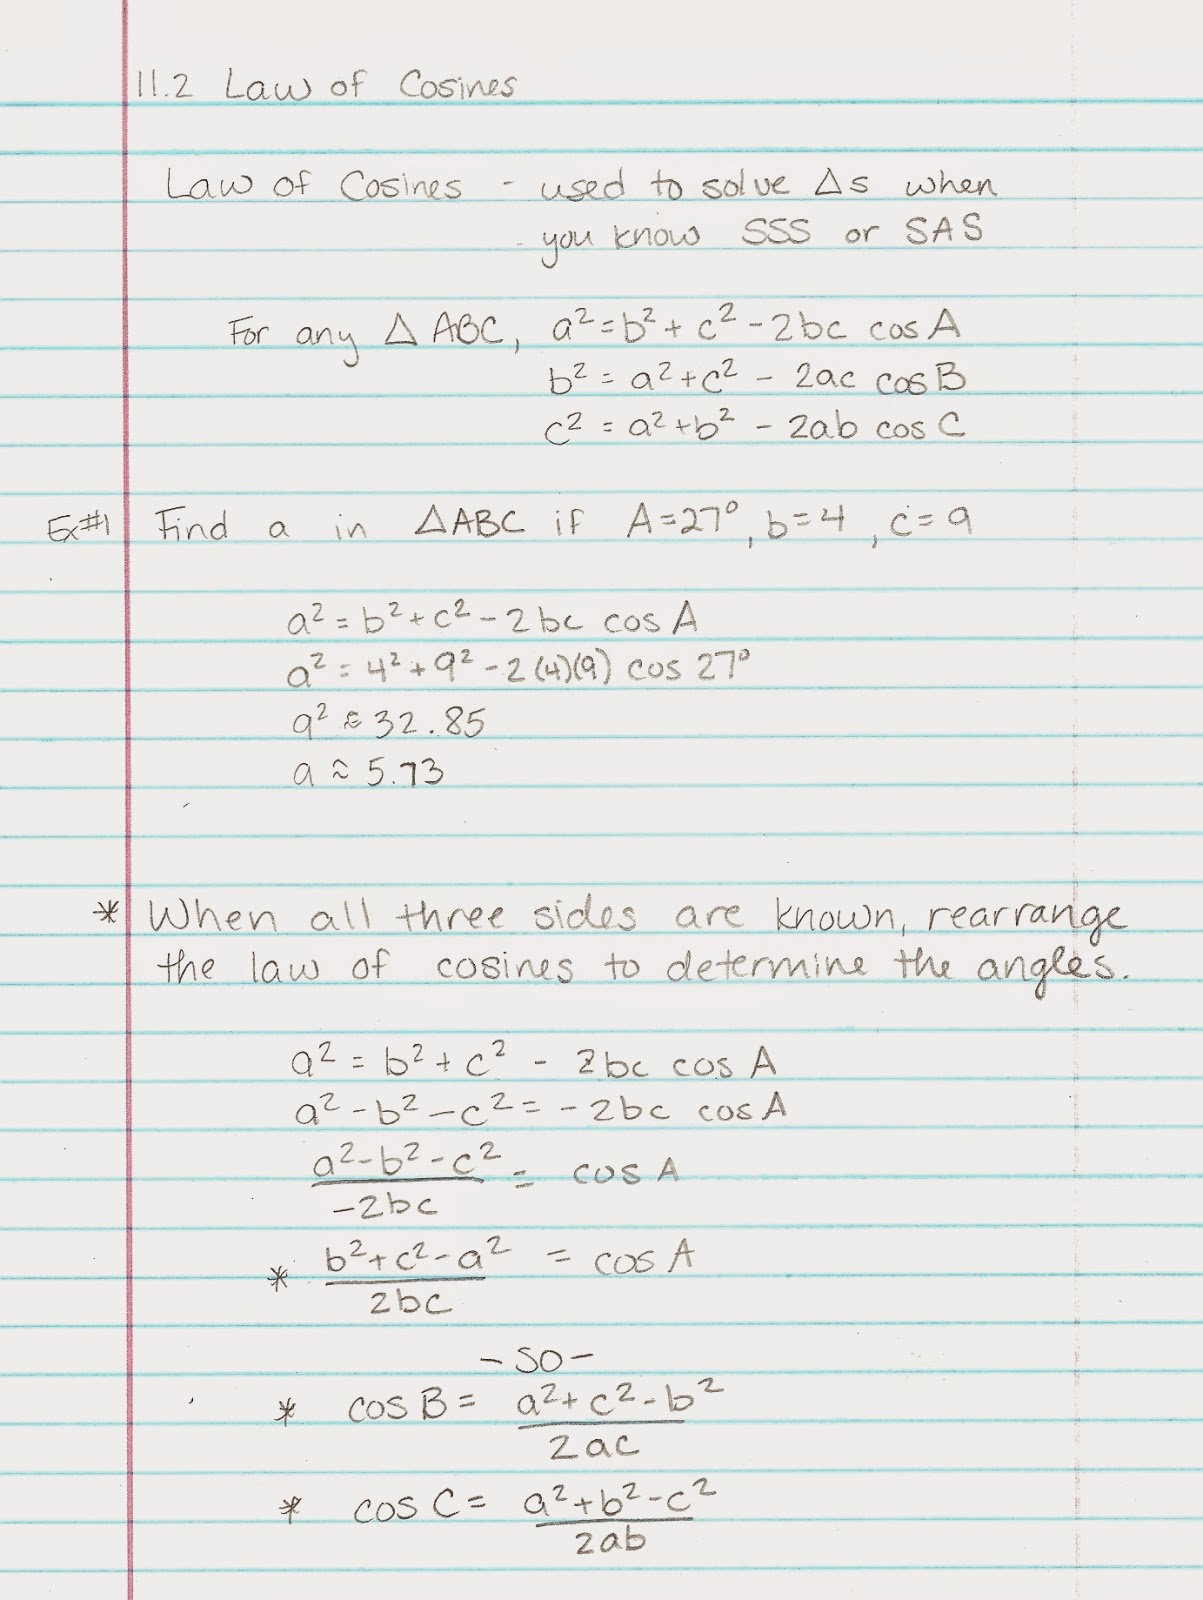 11.2 Law of Cosines
Law of Cosines - used to solve △s when
you know SSS or SAS
For any △ABC, a² = b² + c² - 2bc cos A
b² = a² + c² - 2ac cos B
c² = a² + b² - 2ab cos C
Ex#1 Find a in △ABC if A=27°, b=4, c=9
a² = b² + c² - 2bc cos A
a² = 4² + 9² - 2(4)(9) cos 27°
a² ≈ 32.85
a ≈ 5.73
* When all three sides are known, rearrange
the law of cosines to determine the angles.
a² = b² + c² - 2bc cos A
a² - b² - c² = -2bc cos A
a² - b² - c² = cos A
-2bc
* b² + c² - a² = cos A
2bc
- SO -
* cos B = a² + c² - b²
2ac
* cos C = a² + b² - c²
2ab